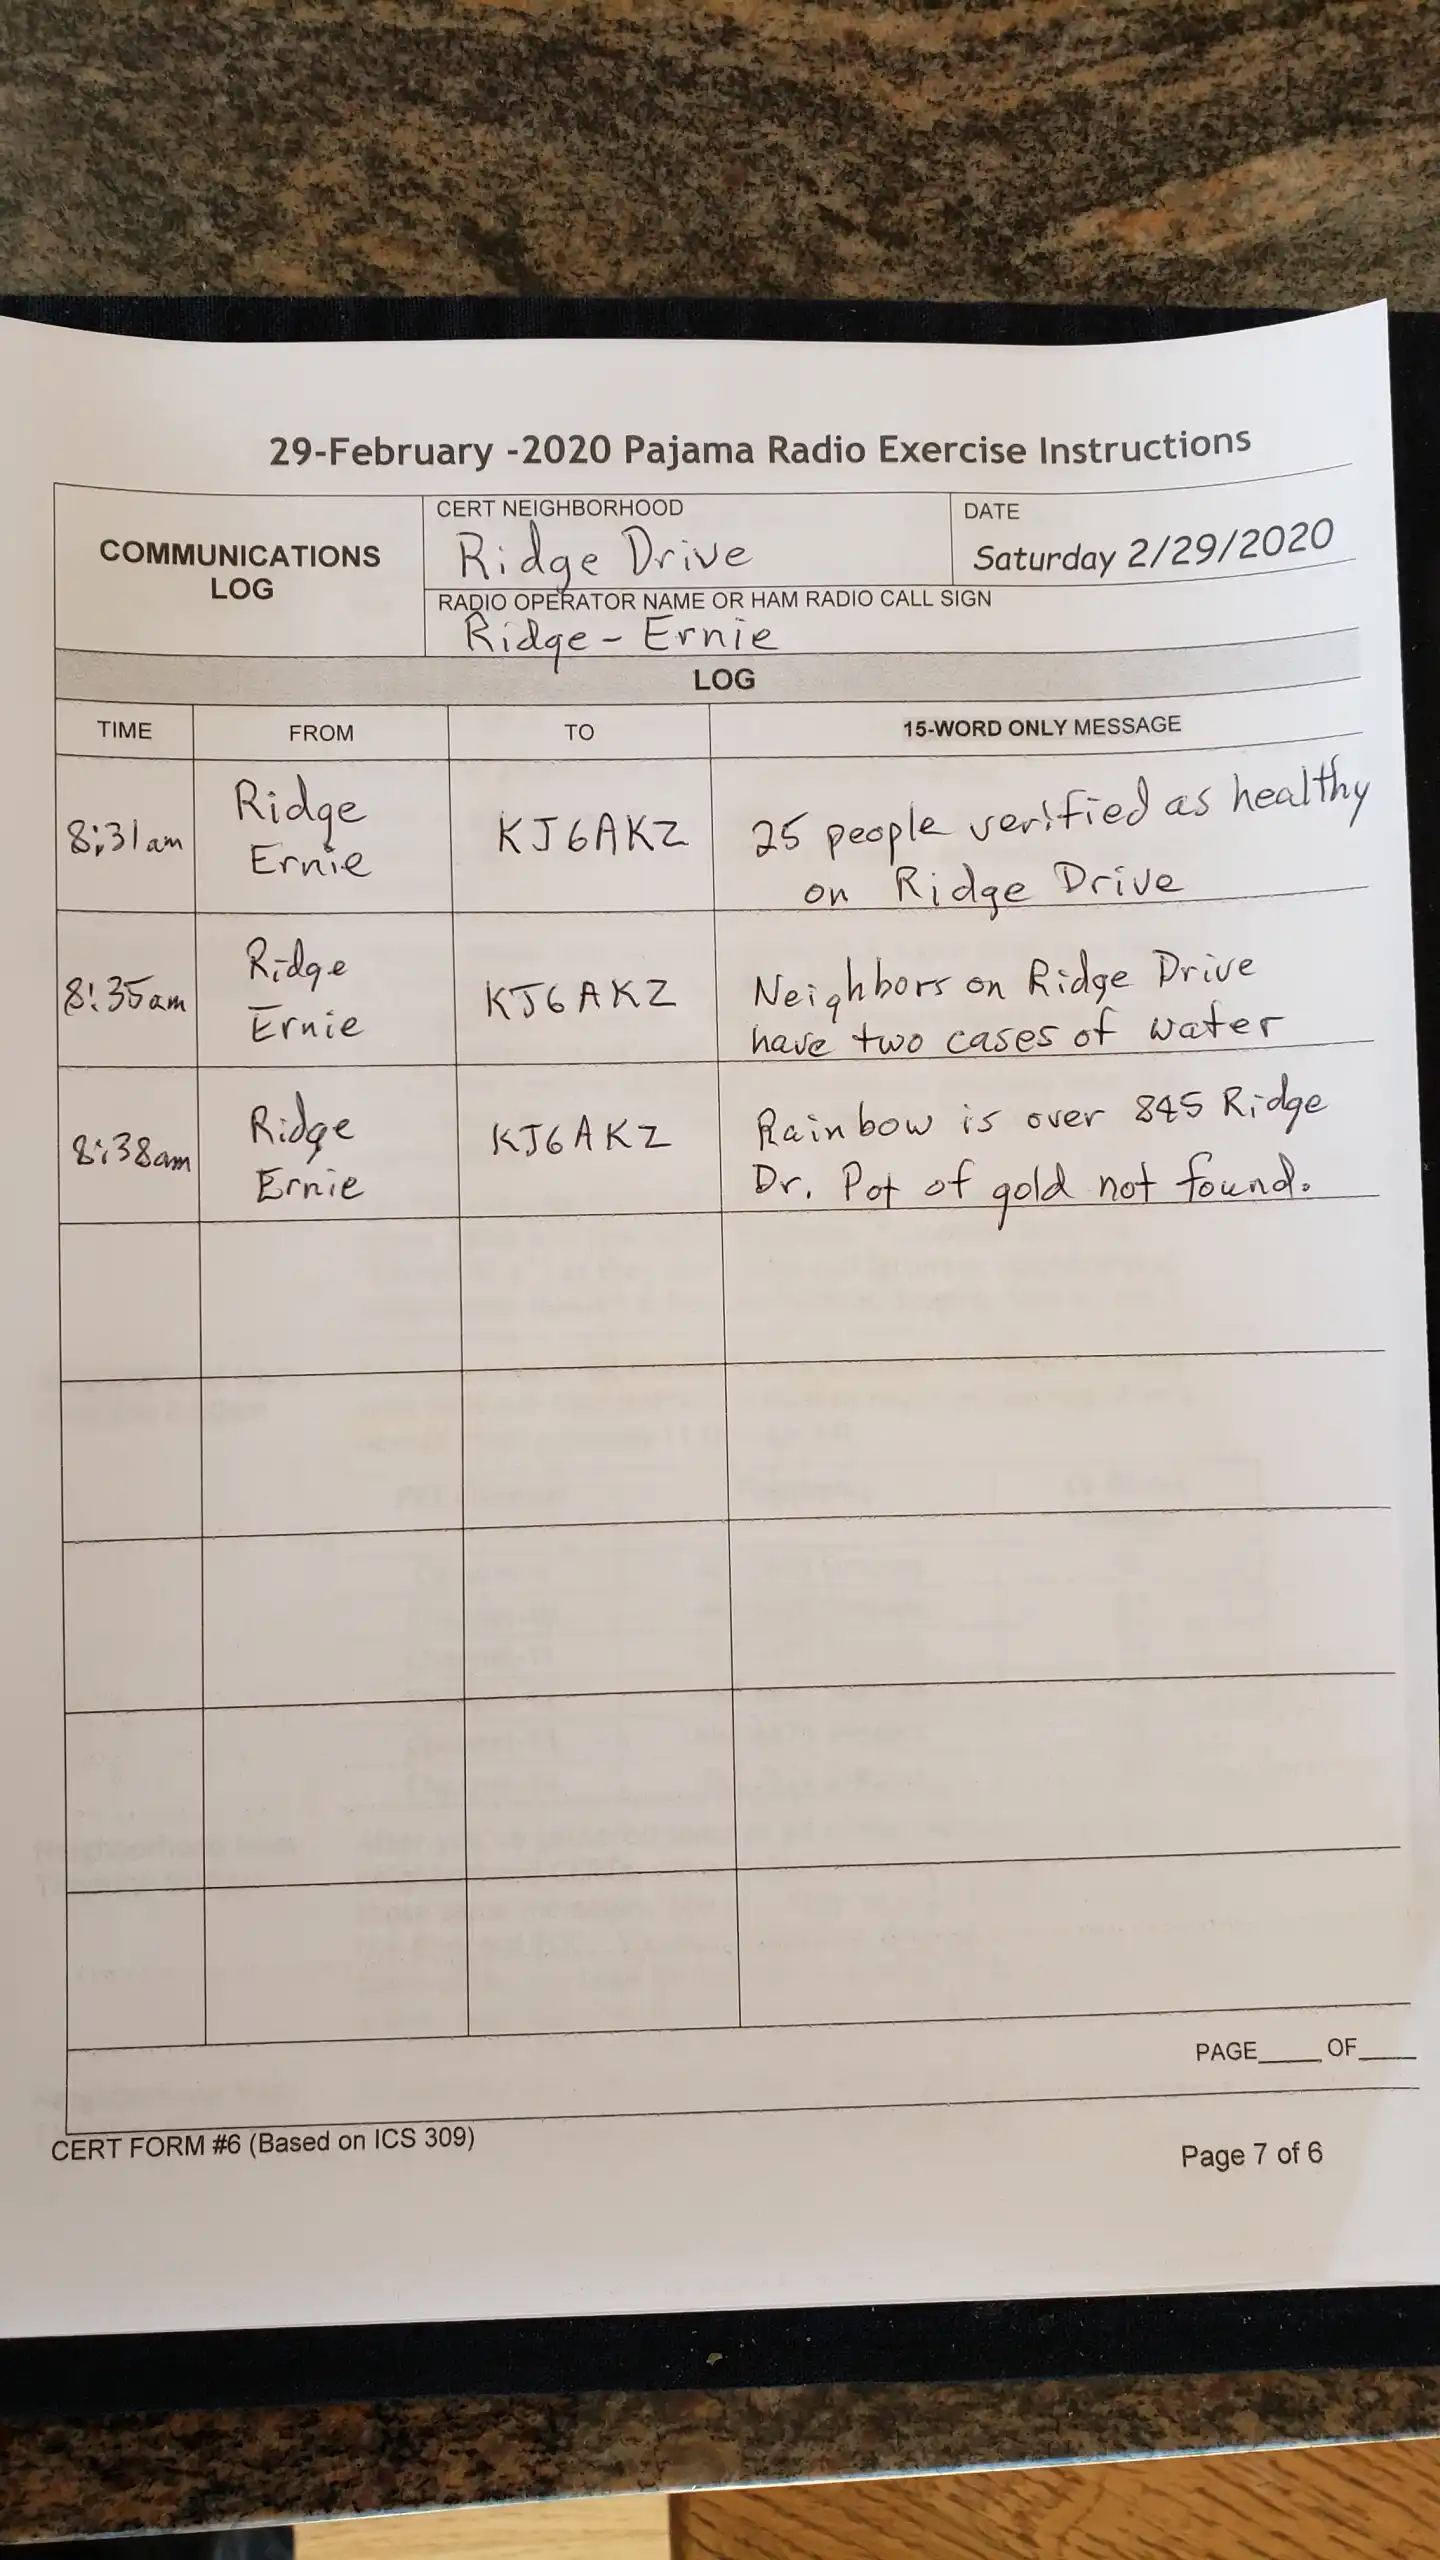 29-February -2020 Pajama Radio Exercise Instructions
COMMUNICATIONS
LOG
CERT NEIGHBORHOOD
Ridge Drive
DATE
Saturday 2/29/2020
RADIO OPERATOR NAME OR HAM RADIO CALL SIGN
Ridge - Ernie
LOG
TIME FROM TO 15-WORD ONLY MESSAGE
8:31am
Ridge
Ernie
KJ6AKZ
25 people verified as healthy
on Ridge Drive
8:35am
Ridge
Ernie
KJ6AKZ
Neighbors on Ridge Drive
have two cases of water
8:38am
Ridge
Ernie
KJ6AKZ
Rainbow is over 845 Ridge
Dr. Pot of gold not found.
PAGE____ OF____
CERT FORM #6 (Based on ICS 309)
Page 7 of 6